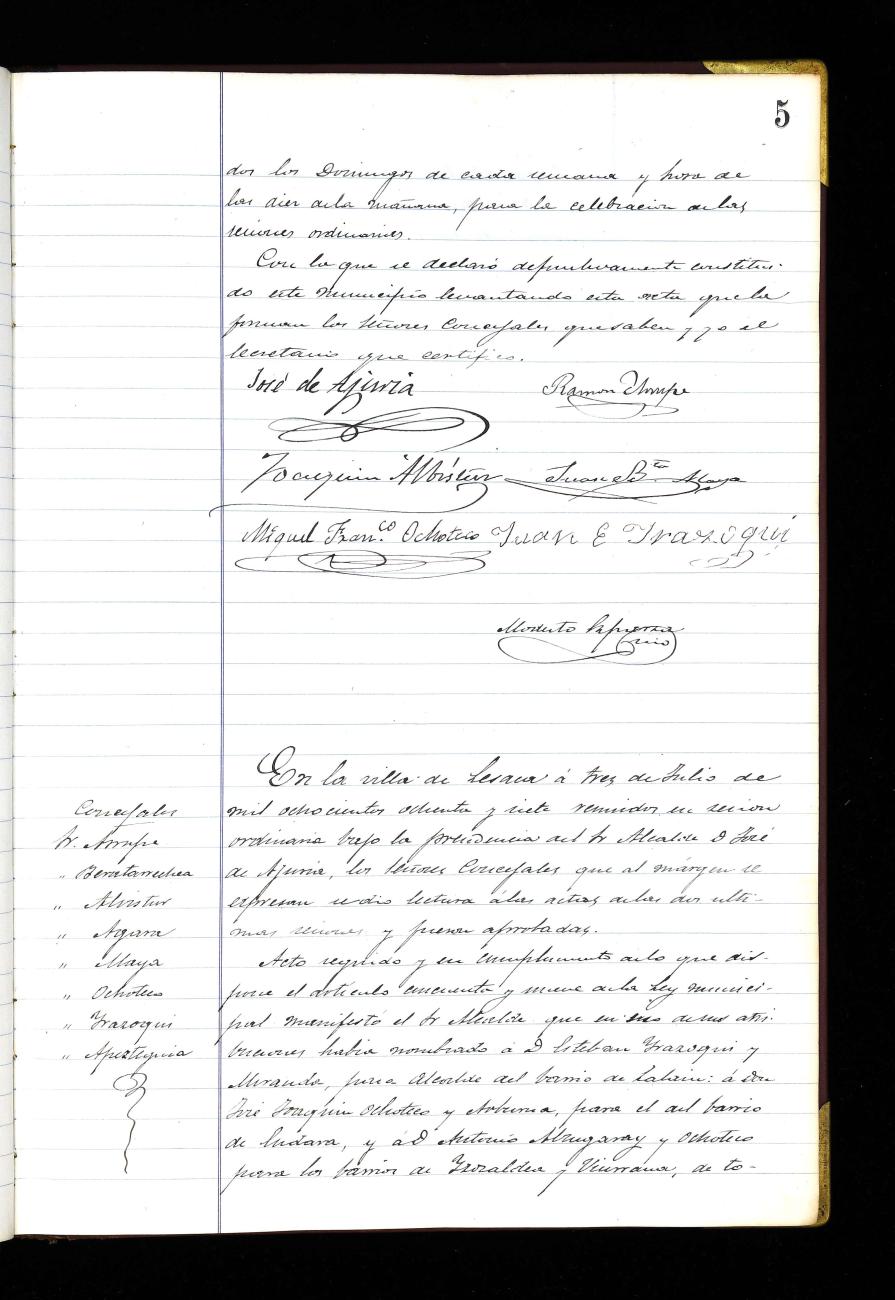 5
dos los Domingos de cada semana y hora de
las diez de la mañana, para la celebracion de las
sesiones ordinarias.
Con lo que se declaró definitivamente constitui-
do este municipio levantando esta acta que la
firman los Señores Concejales que saben y yo el
Secretario que certifico.
José de Ajuria
Ramon Arrupe
Joaquin Albistur
Juan Bta Maya
Miguel Franco Ochoteco
Juan E Yrazoqui
Modesto
En la villa de Lesaca á tres de Julio de
mil ochocientos ochenta y siete reunidos en sesion
ordinaria bajo la presidencia del Sr Alcalde D José
de Ajuria, los Señores Concejales que al márgen se
expresan se dio lectura á las actas de las dos ulti-
mas sesiones y fueron aprobadas.
Acto seguido y en cumplimiento de lo que dis-
pone el artículo cincuenta y nueve de la Ley munici-
pal manifestó el Sr Alcalde que en uso de sus atri-
buciones habia nombrado á D Esteban Yrazoqui y
Miranda, para Alcalde del barrio de : á Don
José Joaquin Ochoteco y , para el del barrio
de Endara, y á D Antonio Alzugaray y Ochoteco
para los barrios de y , de to-
Concejales
Sr. Arrupe
" Berratarrechea
" Alvistur
" Agara
" Maya
" Ochoteco
" Yrazoqui
" Apezteguia